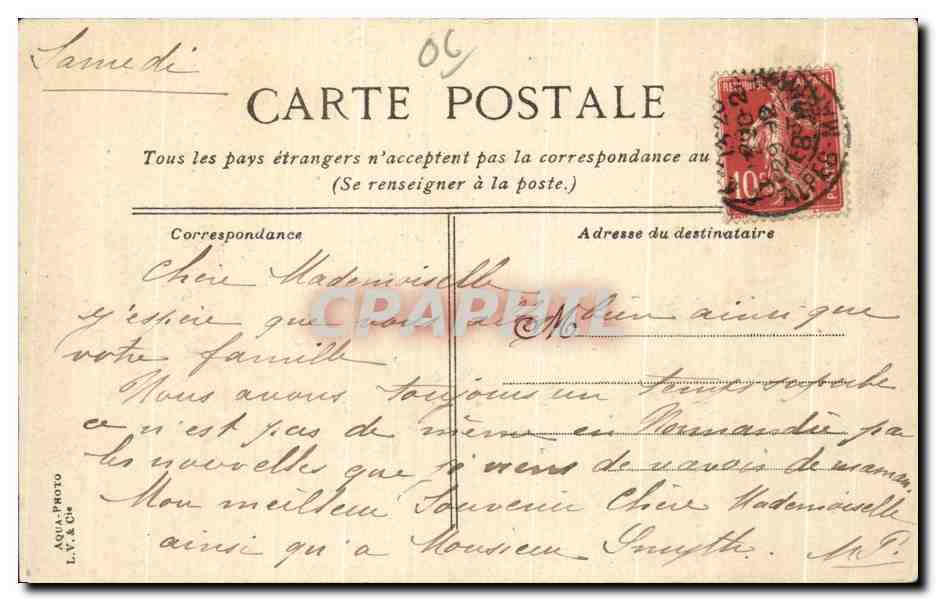 Samedi
06
CARTE POSTALE
Tous les pays étrangers n'acceptent pas la correspondance au
(Se renseigner à la poste.)
10
ALPES MAR
Correspondance
Adresse du destinataire
Chère Mademoiselle
j'espère que vous allez bien ainsi que
M
CPAPHIL
votre famille.
Nous avons toujours un temps superbe
ce n'est pas de même en Normandie par
les nouvelles que je viens de maman.
Mon meilleur Souvenir Chère Mademoiselle
ainsi qu'a Monsieur Smyth. M.P.
AQUA-PHOTO
L. V. & Cie